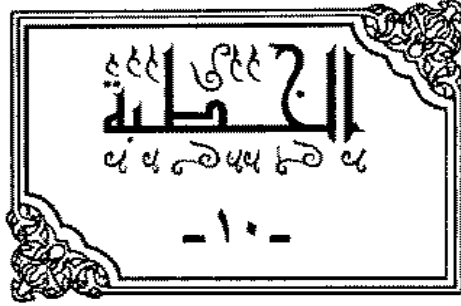 الخطبة
- ١٠ -